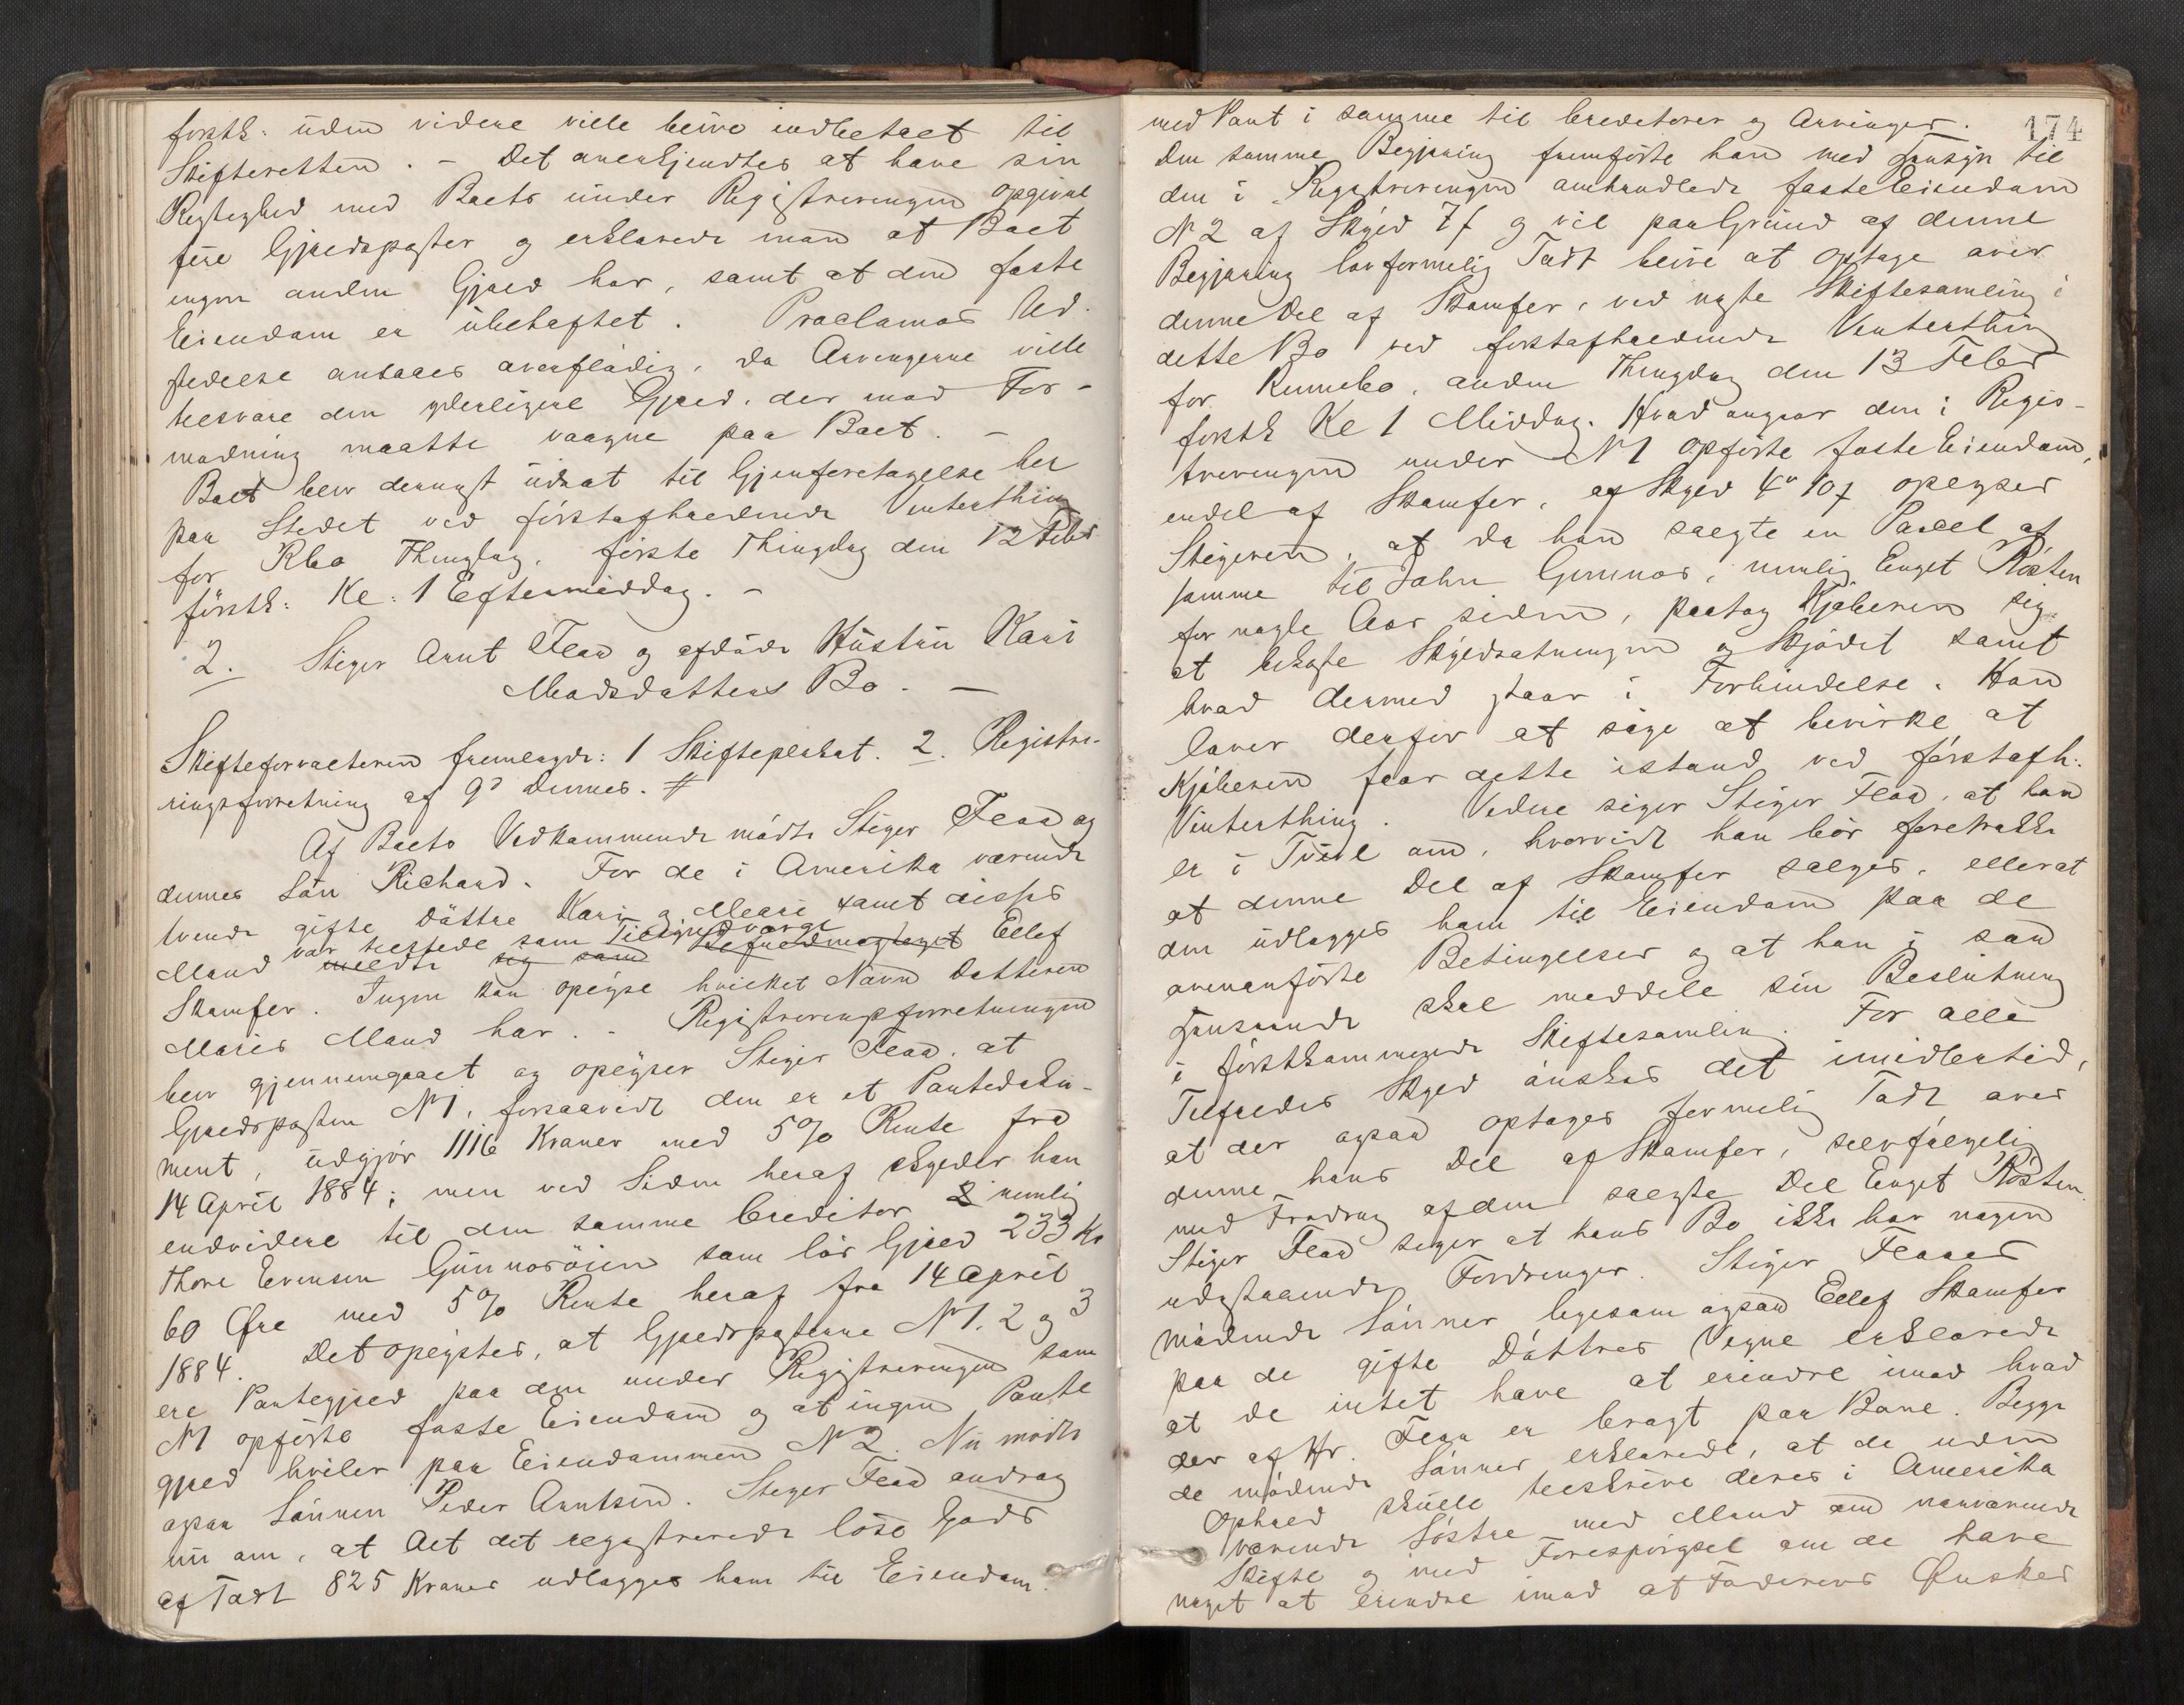 forstk: uden videre ville blive indbetalt til
Skifteretten. – Det anerkjendtes at have sin
Rigtighed med Boets under Registreringen opgivne
fire Gjældsposter og erklærede man at Boet
ingen anden Gjæld har, samt at den faste
Eiendom er ubehæftet. Proclamas Ud-
stedelse ansaaes overflødig, da Arvingerne ville
tilsvare den yderligere Gjæld, der mod For-
modning maatte vaagne paa Boet. –
Boet blev dernæst udsat til Gjenforetagelse her
paa Stedet ved førstafholdende Vinterthing
for Rbo Thinglag, første Thingdag den 12 Febr
førstk: Kl: 1 Eftermiddag. –
2. Stiger Arnt Flaa og afdøde Hustru Kari
Madsdatters Bo. –
Skifteforvalteren fremlagde: 1 Skifteplakat. 2. Registre-
ringsforretning af 9d dennes. #
Af Boets Vedkommende mødte Stiger Flaa og
dennes Søn Richard. For de i Amerika værende
tvende gifte Døttre Kari og Marie samt disses
var tilstede som Tilsynsværge
Mand meldte sig som Befuldmægtiget Ellef
Skamfer. Ingen kan opgive hvilket Navn Datteren
Maries Mand har. – Registreringsforretningen
blev gjennemgaaet og oplyser Stiger Flaa, at
Gjældsposten N 1, forsaavidt den er et Pantedoku-
ment, udgjør 1116 Kroner med 5% Rente fra
14 April 1884; men ved Siden heraf skylder han
endvidere til den samme Creditor nemlig
Thore Evensen Gunnesøien som løs Gjæld 233 Kr
60 Øre med 5% Rente heraf fra 14 April
1884. Det oplystes, at Gjældsposterne N 1. 2 og 3
ere Pantegjæld paa den under Registreringen som
N 1 opførte faste Eiendom og at ingen Pante
gjæld hviler paa Eiendommen N 2. Nu mødte
ogsaa Sønnen Peder Arntsen. Stiger Flaa androg
nu om, at Alt det registrerede løse Gods
af Taxt 825 Kroner udlægges ham til Eiendom
174
med Pant i samme til Creditorer og Arvinger.
Den samme Begjæring fremførte han med Hensyn til
den i Registreringen omhandlede faste Eiendom
N 2 af Skyld 7 f og vil paa Grund af denne
Begjæring lovformelig Taxt blive at optage over
denne Del af Skamfer, ved næste Skiftesamling i
dette Bo ved førstafholdende Vinterthing
for Rennebo, anden Thingdag den 13 Febr
førstk Kl 1 Middag. Hvad angaar den i Regis-
treringen under N 1 opførte faste Eiendom,
endel af Skamfer, af Skyld 4 10 f oplyser
Stigeren, at da han solgte en Parcel af
samme til John Gunnes, nemlig Enget Røsten
for nogle Aar siden, paatog Kjøberen sig
at bekoste Skyldsætningen og Skjødet samt
hvad dermed staar i Forbindelse. Han
lover derfor at søge at bevirke at
Kjøberen faar dette istand ved førstafh:
Vinterthing. Videre siger Stiger Flaa, at han
er i Tvivl om, hvorvidt han bør foretrække
at denne Del af Skamfer sælges, eller at
den udlægges ham til Eiendom paa de
ovenanførte Betingelser og at han i saa
Henseende skal meddele sin Beslutning
i førstkommende Skiftesamling. For alle
Tilfældes Skyld ønskes det imidlertid,
at der ogsaa optages formelig Taxt over
denne hans Del af Skamfer, selvfølgelig
med Fradrag af den solgte Del Enget Røsten.
Stiger Flaa siger at hans Bo ikke har nogen
udestaaende Fordringer. Stiger Flaaes
mødende Sønner ligesom ogsaa Ellef Skamfer
paa de gifte Døttres Vegne erklærede
at de intet have at erindre imod hvad
der af Hr. Flaa er bragt paa Bane. Begge
de mødende Sønner erklærede, at de uden
Ophold skulle tilskrive deres i Amerika
værende Søstre med Mand om nærværende
Skifte og med Forespørgsel om de have
noget at erindre imod at Faderens Ønsker